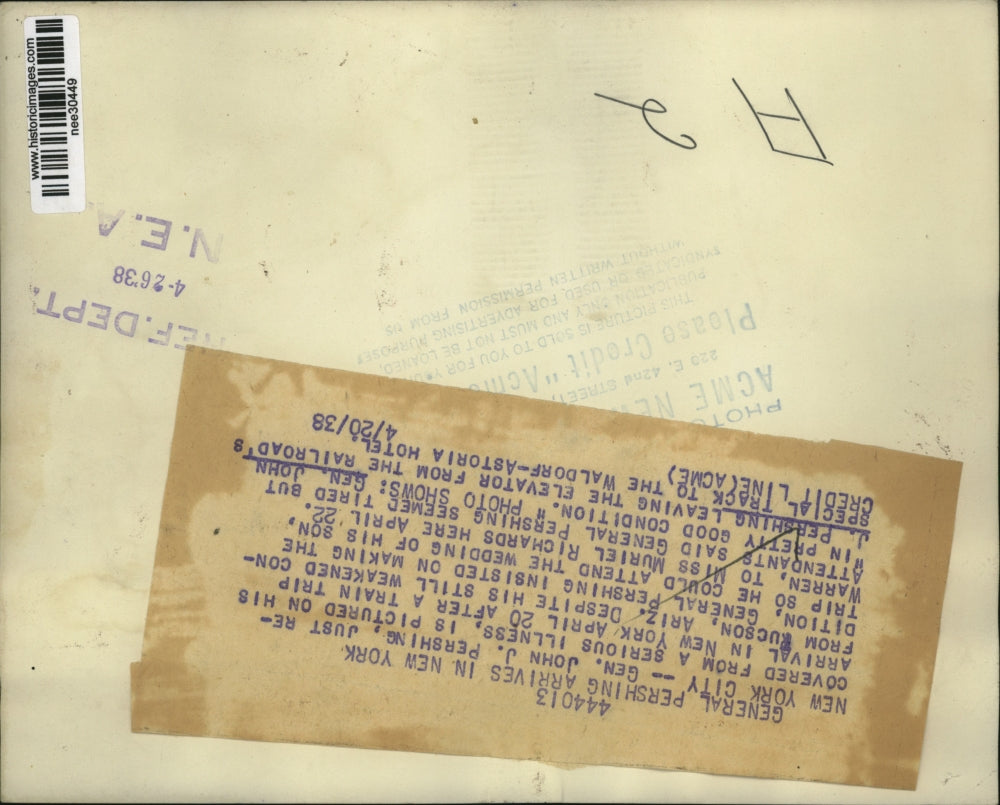 www.historicimages.com
nee30449
H 2
N.E.A.
4-26'38
REF. DEPT.
PHOTO
ACME NE
220 E. 42nd STREET,
Please Credit "Acme
THIS PICTURE IS SOLD TO YOU FOR YOUR
PUBLICATION ONLY AND MUST NOT BE LOANED,
SYNDICATED OR USED FOR ADVERTISING PURPOSES
WITHOUT WRITTEN PERMISSION FROM US
444013
GENERAL PERSHING ARRIVES IN NEW YORK
NEW YORK CITY -- GEN. JOHN J. PERSHING, JUST RE-
COVERED FROM A SERIOUS ILLNESS, IS PICTURED ON HIS
ARRIVAL IN NEW YORK APRIL 20 AFTER A TRAIN TRIP
FROM TUCSON, ARIZ. DESPITE HIS STILL WEAKENED CON-
DITION, GENERAL PERSHING INSISTED ON MAKING THE
TRIP SO HE COULD ATTEND THE WEDDING OF HIS SON,
WARREN, TO MISS MURIEL RICHARDS HERE APRIL 22.
ATTENDANTS SAID GENERAL PERSHING SEEMED TIRED BUT
"IN PRETTY GOOD CONDITION." PHOTO SHOWS: GEN. JOHN
J. PERSHING LEAVING THE ELEVATOR FROM THE RAILROAD'S
SPECIAL TRACK TO THE WALDORF-ASTORIA HOTEL.
CREDIT LINE (ACME) 4/20/38